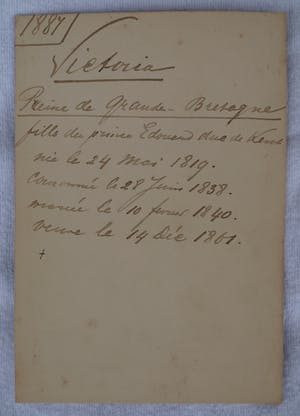 1887
Victoria
Reine de Grande-Bretagne
fille du prince Edouard duc de Kent
née le 24 Mai 1819.
couronnée le 28 Juin 1838.
mariée le 10 février 1840.
veuve le 14 Déc 1861.
+